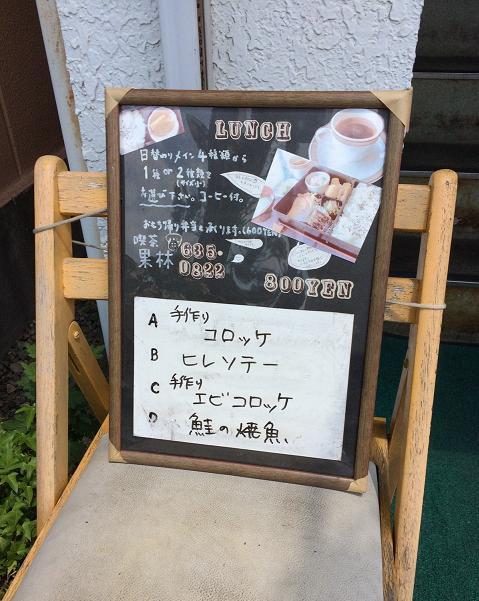 LUNCH
日替のりメイン4種類から
1種 or 2種類を
(サイズ小)
お選び下さい。コーヒー付。
おもち帰り弁当も承ります。(600YEN)
喫茶
果林
635-
0822
800YEN
A 手作り
コロッケ
B ヒレソテー
C 手作り
エビコロッケ
D 鮭の焼魚